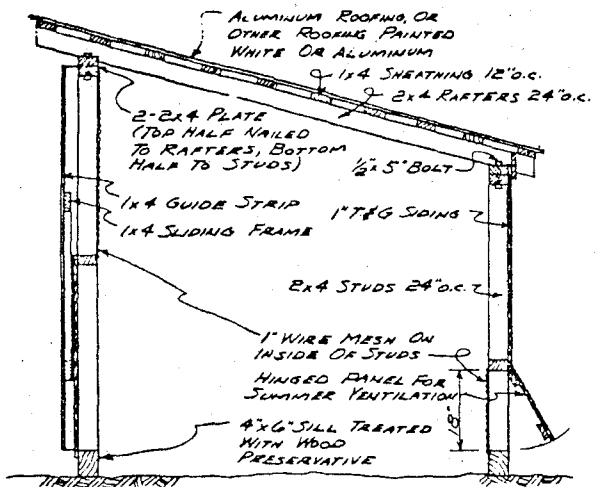 ALUMINUM ROOFING, OR
OTHER ROOFING PAINTED
WHITE OR ALUMINUM
1x4 SHEATHING 12"O.C.
2x4 RAFTERS 24"O.C.
2-2x4 PLATE
(TOP HALF NAILED
TO RAFTERS, BOTTOM
HALF TO STUDS)
½"x5" BOLT
1x4 GUIDE STRIP
1"T&G SIDING
1x4 SLIDING FRAME
2x4 STUDS 24"O.C.
1" WIRE MESH ON
INSIDE OF STUDS
HINGED PANEL FOR
SUMMER VENTILATION
18"
4"x6" SILL TREATED
WITH WOOD
PRESERVATIVE